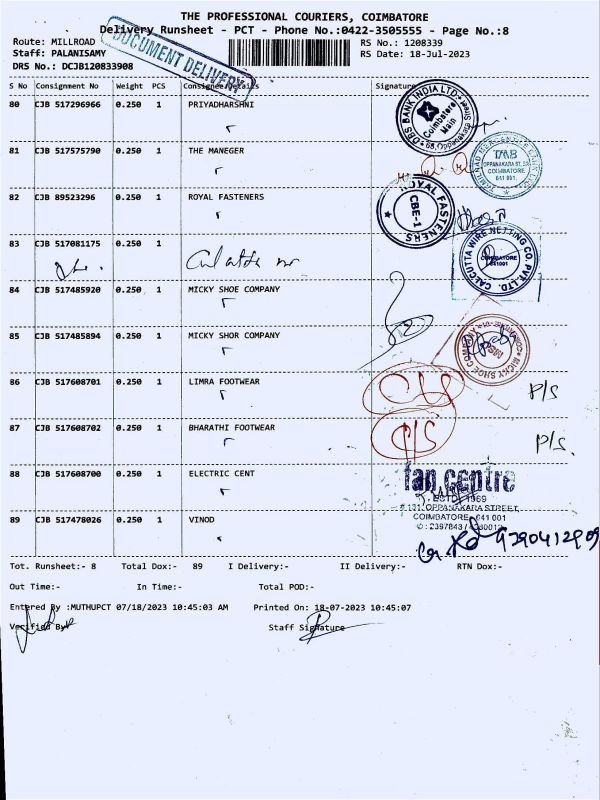 THE PROFESSIONAL COURIERS, COIMBATORE
Delivery Runsheet - PCT - Phone No.:0422-3505555 - Page No.:8
Route: MILLROAD RS No.: 1208339
Staff: PALANISAMY RS Date: 18-Jul-2023
DRS No.: DCJB120833908
DOCUMENT DELIVERY
S No Consignment No Weight PCS Consignee Details Signature
80 CJB 517296966 0.250 1 PRIYADHARSHNI
DBS BANK INDIA LTD. Coimbatore Main
81 CJB 517575790 0.250 1 THE MANEGER
TAMILNAD MERCANTILE BANK LTD. TMB OPPANAKARA ST. COIMBATORE 641 001.
82 CJB 89523296 0.250 1 ROYAL FASTENERS
ROYAL FASTENERS CBE-1
83 CJB 517081175 0.250 1
CALCUTTA WIRE NETTING CO. PVT. LTD. COIMBATORE 641001
84 CJB 517485920 0.250 1 MICKY SHOE COMPANY
85 CJB 517485894 0.250 1 MICKY SHOR COMPANY
MICKY SHOE COMPANY
86 CJB 517608701 0.250 1 LIMRA FOOTWEAR
P/S
87 CJB 517608702 0.250 1 BHARATHI FOOTWEAR
P/S P/S.
88 CJB 517608700 0.250 1 ELECTRIC CENT
fan centre
ESTD. 1969
# 131, OPPANAKARA STREET,
COIMBATORE - 641 001
89 CJB 517478026 0.250 1 VINOD
9790412909
Tot. Runsheet:- 8 Total Dox:- 89 I Delivery:- II Delivery:- RTN Dox:-
Out Time:- In Time:- Total POD:-
Entered By :MUTHUPCT 07/18/2023 10:45:03 AM Printed On: 18-07-2023 10:45:07
Verified By Staff Signature